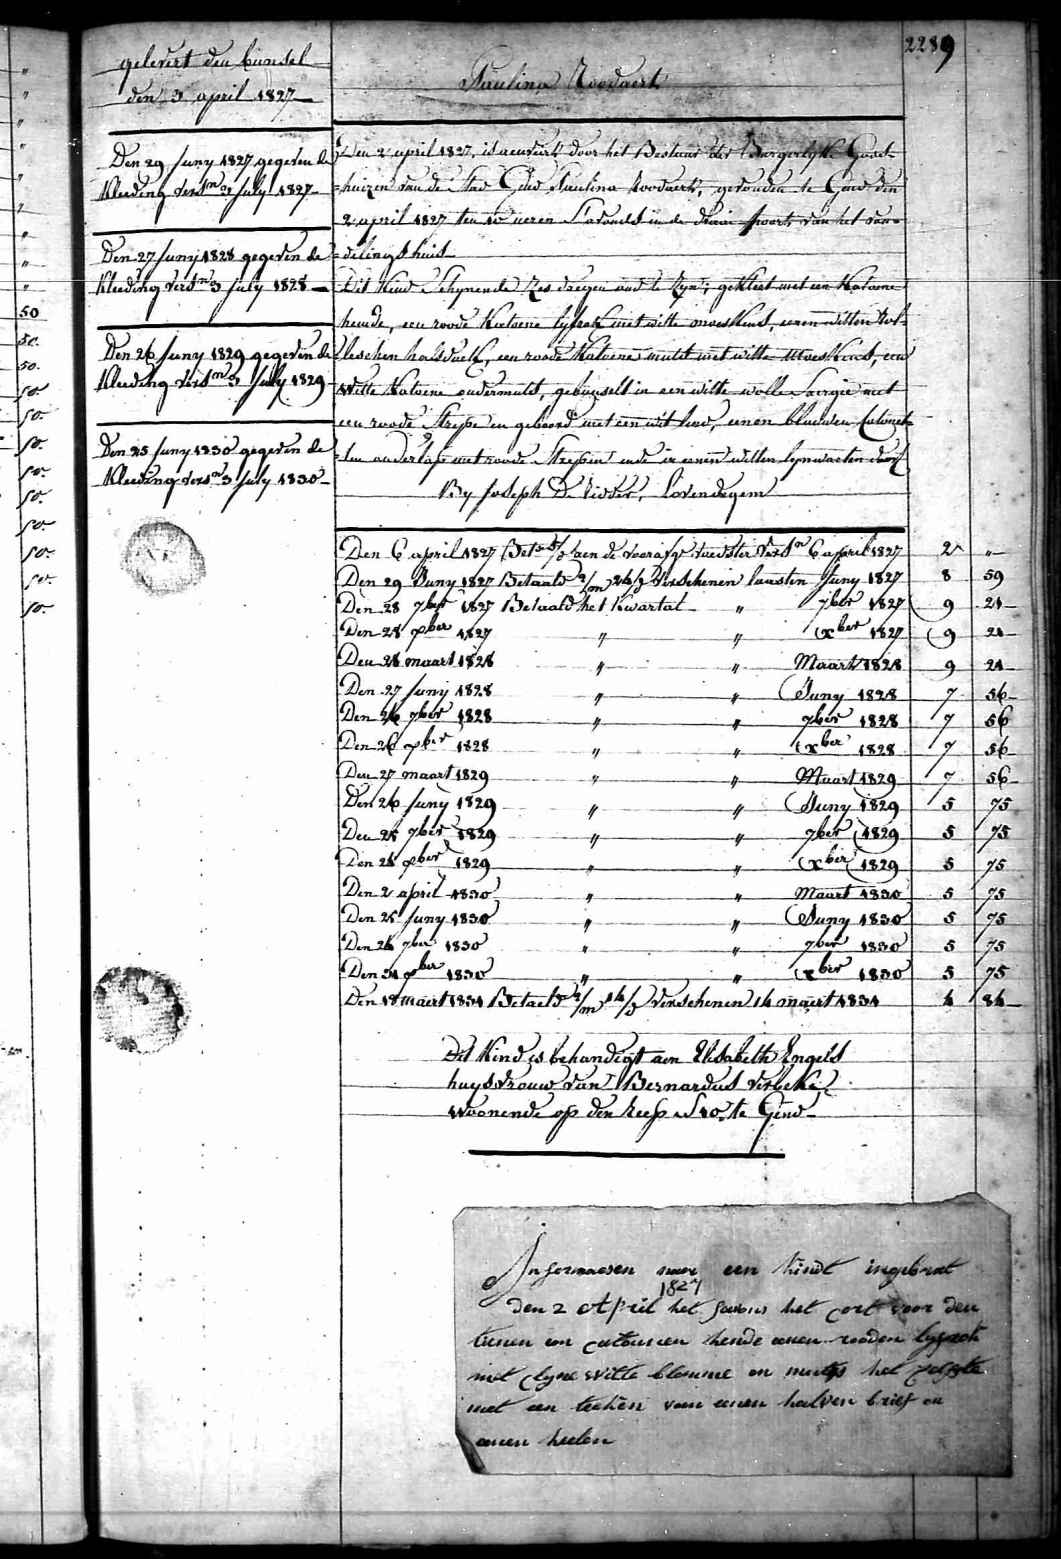 2289
gelevert den bundel
den 3 april 1827
Den 29 Juny 1827 gegeven de
Kleeding vers 3 July 1827
Den 27 Juny 1828 gegeven de
Kleeding vers 3 July 1828
Den 26 Juny 1829 gegeven de
Kleeding vers 3 July 1829
Den 25 Juny 1830 gegeven de
Kleeding vers 3 July 1830
Paulina Roodaert
Den 2 april 1827, is door het Bestuur der Burgerlyke Gast-
=huizen van de Stad Gend Paulina Roodaert, gevonden te Gend den
2 april 1827 ten 10 ueren s'avonds in de draai poorte van het von=
=delings huis
Dit Kind schynende zes daegen oud te zyn, gekleet met een Katoene
hemde, een roode Katoene lyfrok met witte moeskens, eenen witten
halsdoek, een roode Katoene muts met witte moeskens, een
witte Katoene ondermuts, gebunselt in een witte wolle Sargie met
een roode Strepe en geboord met een wit lind, eenen blauwen
met roode Strepen ende in eenen witten lynwaeten doek
By Joseph De Visser, Lovendegem
Den 6 april 1827 aen de voorafge voedster vers 6 april 1827 2 "
Den 29 Juny 1827 Betaald 2/m 26/d Verschenen laesten Juny 1827 8 59
Den 28 7ber 1827 Betaald het Kwartal " 7ber 1827 9 21
Den 28 xber 1827 " " xber 1827 9 21
Den 28 maart 1828 " " Maart 1828 9 21
Den 27 Juny 1828 " " Juny 1828 7 56
Den 26 7ber 1828 " " 7ber 1828 7 56
Den 26 xber 1828 " " xber 1828 7 56
Den 27 maart 1829 " " Maart 1829 7 56
Den 26 Juny 1829 " " Juny 1829 5 75
Den 25 7ber 1829 " " 7ber 1829 5 75
Den 28 xber 1829 " " xber 1829 5 75
Den 2 april 1830 " " Maart 1830 5 75
Den 25 Juny 1830 " " Juny 1830 5 75
Den 28 7ber 1830 " " 7ber 1830 5 75
Den 31 xber 1830 " " xber 1830 5 75
Den 18 maert 1831 Betaeld 2/m 14/d Verschenen 14 maert 1831 4 84
Dit Kind is behandigt aen Elisabeth Engels
huysvrouw van Bernardus Verbeke
woonende op den Reep N 10 te Gend
Informaesen naer een kindt ingebrat
1827
den 2 April het savons het cort voor den
tienen en catounen hemde eenen rooden lyfrock
met clyne witte blomme en muts het zelfste
met een teeken van eenen halven brief en
eenen heelen
50
50.
50.
50.
50.
50.
50.
50.
50.
50.
50.
50.